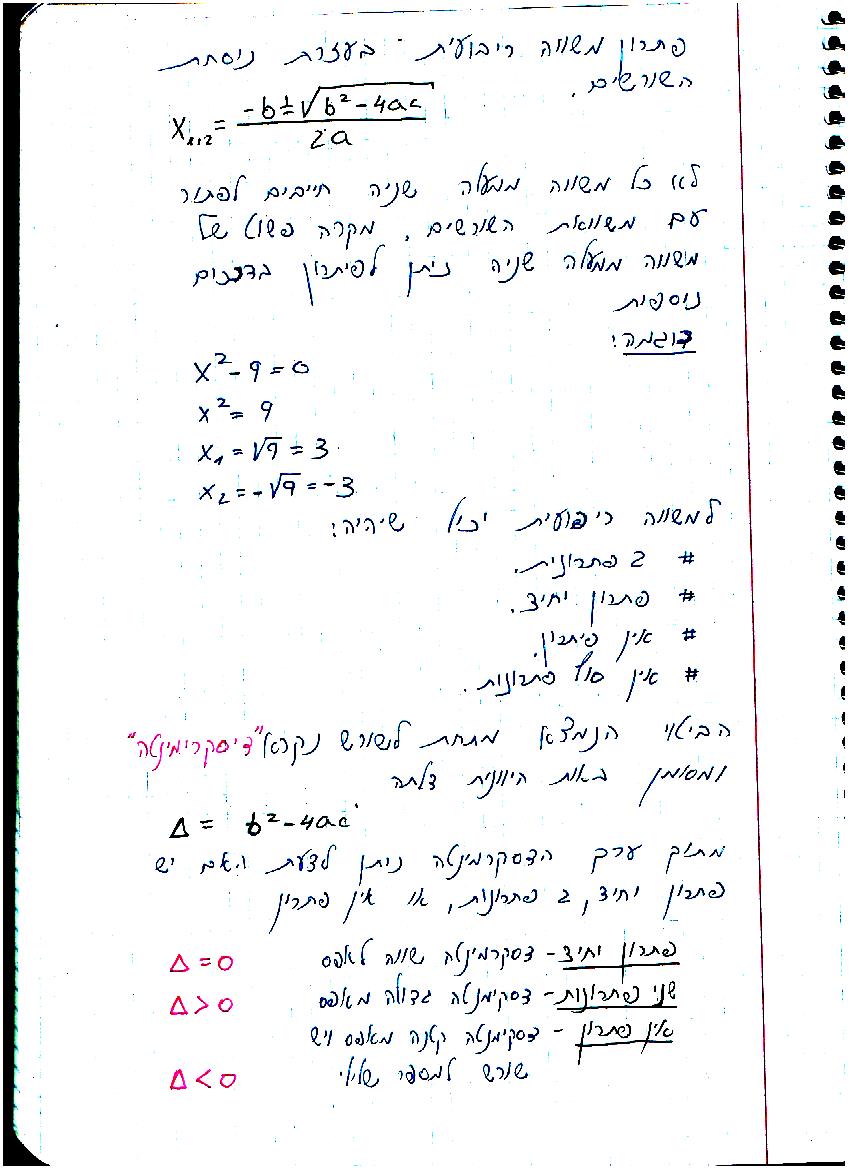 פתרון משווה ריבועית - בעזרת נוסחת
השורשים.
X₁,₂ = (-b±√(b²-4ac))/2a
לא כל משווה ממעלה שניה חייבים לפתור
עם משוואת השורשים, מקרה פשוט של
משווה ממעלה שניה ניתן לפיתרון בדרכים
נוספות
דוגמה:
X² - 9 = 0
X² = 9
X₁ = √9 = 3
X₂ = -√9 = -3
למשווה ריבועית יכול שיהיה:
# 2 פתרונות.
# פתרון יחיד.
# אין פיתרון.
# אין סוף פתרונות.
הביטוי הנמצא מתחת לשורש נקרא "דיסקרימינטה"
ומסומן באות היוונית דלתה
Δ = b²-4ac
מתוך ערך הדסקרמינטה ניתן לדעת האם יש
פתרון יחיד, 2 פתרונות, או אין פתרון
פתרון יחיד - דסקרמינטה שווה לאפס Δ = 0
שני פתרונות - דסקימנטה גדולה מאפס Δ > 0
אין פתרון - דסקימנטה קטנה מאפס ויש
שורש למספר שלילי Δ < 0